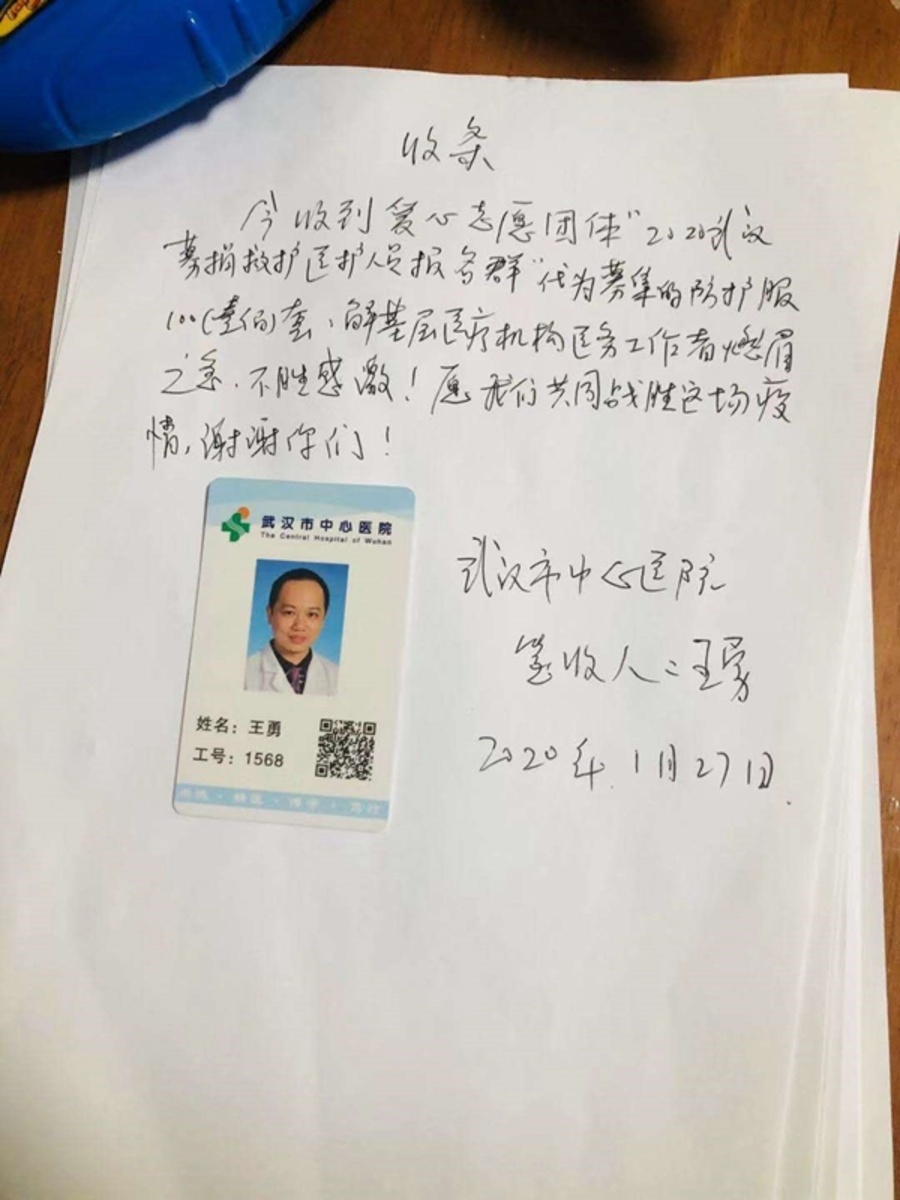 收条
今收到爱心志愿团体"2020武汉
募捐救护医护人员报名群"代为募集的防护服
100(壹佰)套、解基层医疗机构医务工作者燃眉
之急、不胜感激！愿我们共同战胜这场疫
情，谢谢你们！
武汉市中心医院
The Central Hospital of Wuhan
姓名：王勇
工号：1568
武汉市中心医院
签收人：王勇
2020年.1月27日.